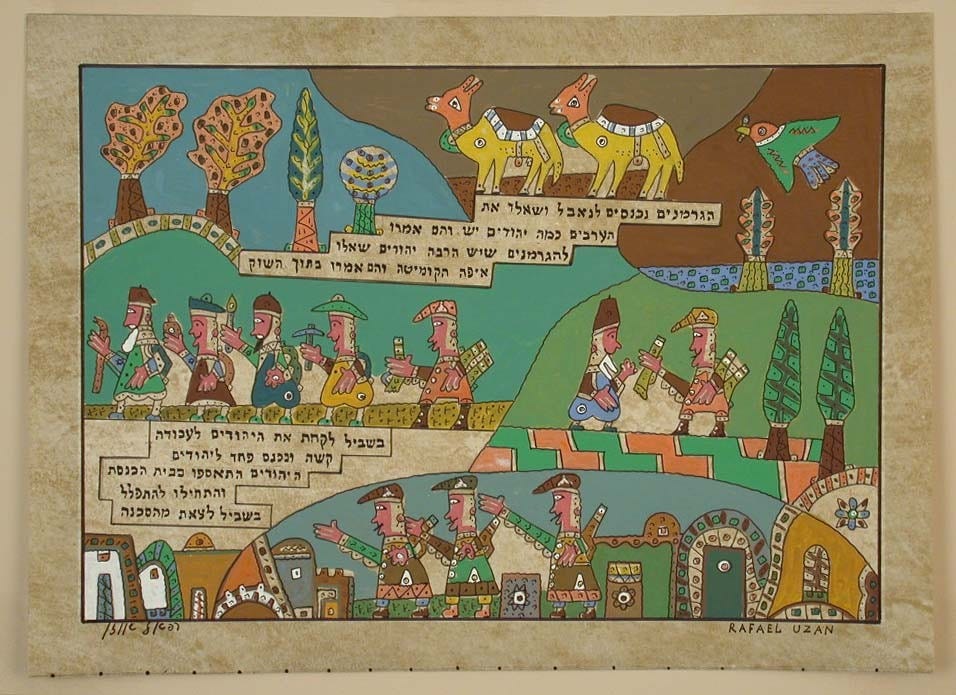 הגרמנים נכנסים לנאבל ושאלו את
הערבים כמה יהודים יש והם אמרו
להגרמנים שיש הרבה יהודים שאלו
איפה הקומיטה והם אמרו בתוך השוק
בשביל לקחת את היהודים לעבודה
קשה ונכנס פחד ליהודים
היהודים התאספו בבית הכנסת
והתחילו להתפלל
בשביל לצאת מהסכנה
רפאל אוזן
RAFAEL UZAN